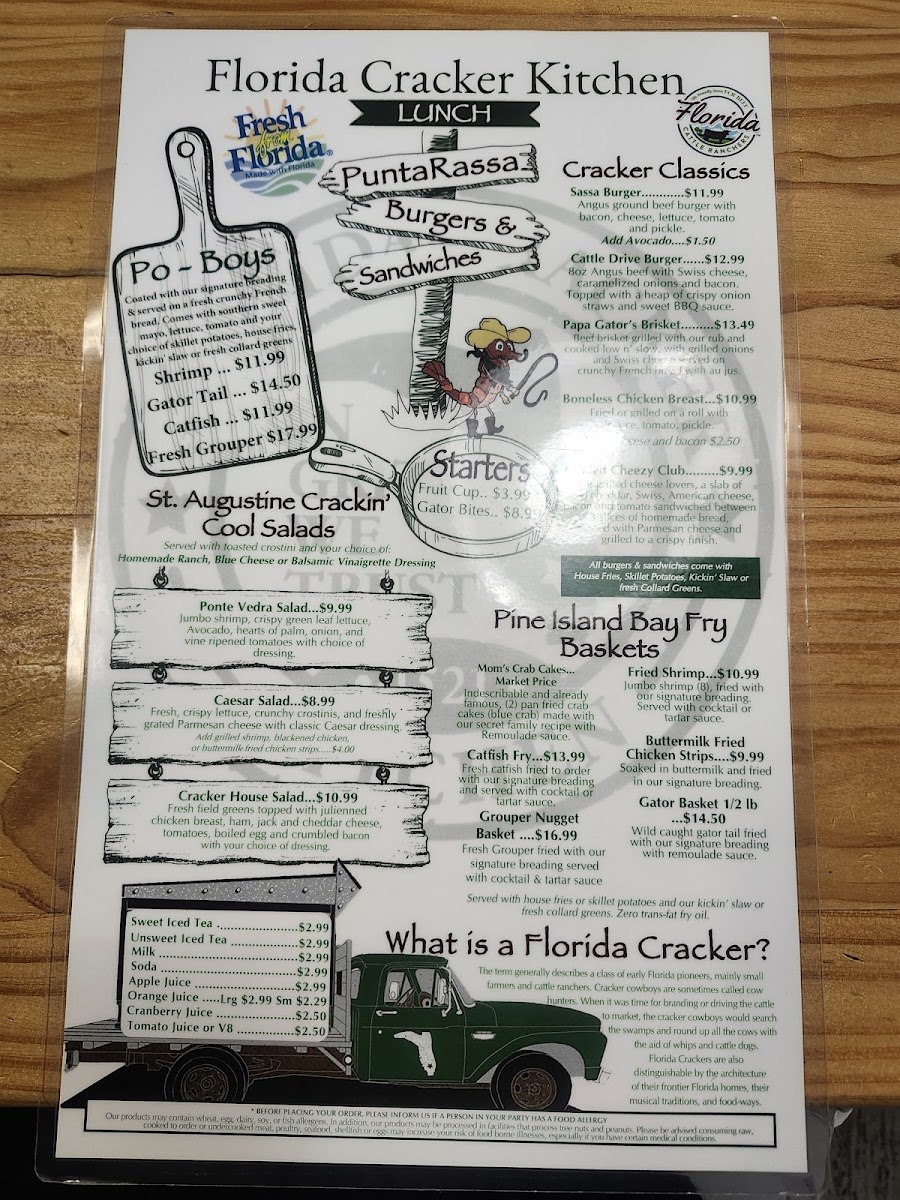 Florida Cracker Kitchen
LUNCH
Fresh
from
Florida®
Made with Florida
Florida
CATTLE RANCHERS
Po - Boys
Coated with our signature breading
& served on a fresh crunchy French
bread. Comes with southern sweet
mayo, lettuce, tomato and your
choice of skillet potatoes, house fries,
kickin' slaw or fresh collard greens
Shrimp ... $11.99
Gator Tail ... $14.50
Catfish ... $11.99
Fresh Grouper $17.99
PuntaRassa
Burgers &
Sandwiches
Starters
Fruit Cup.. $3.99
Gator Bites.. $8.9
Cracker Classics
Sassa Burger............$11.99
Angus ground beef burger with
bacon, cheese, lettuce, tomato
and pickle.
Add Avocado....$1.50
Cattle Drive Burger......$12.99
8oz Angus beef with Swiss cheese,
caramelized onions and bacon.
Topped with a heap of crispy onion
straws and sweet BBQ sauce.
Papa Gator's Brisket.........$13.49
Beef brisket grilled with our rub and
cooked low n' slow, with grilled onions
and Swiss served on
crunchy French bread with au jus.
Boneless Chicken Breast...$10.99
Fried or grilled on a roll with
lettuce, tomato, pickle.
cheese and bacon $2.50
Cheezy Club.........$9.99
cheese lovers, a slab of
cheddar, Swiss, American cheese,
bacon and tomato sandwiched between
slices of homemade bread,
with Parmesan cheese and
grilled to a crispy finish.
All burgers & sandwiches come with
House Fries, Skillet Potatoes, Kickin' Slaw or
fresh Collard Greens.
St. Augustine Crackin'
Cool Salads
Served with toasted crostini and your choice of:
Homemade Ranch, Blue Cheese or Balsamic Vinaigrette Dressing
Ponte Vedra Salad...$9.99
Jumbo shrimp, crispy green leaf lettuce,
Avocado, hearts of palm, onion, and
vine ripened tomatoes with choice of
dressing.
Caesar Salad...$8.99
Fresh, crispy lettuce, crunchy crostinis, and freshly
grated Parmesan cheese with classic Caesar dressing.
Add grilled shrimp, blackened chicken,
or buttermilk fried chicken strips.....$4.00
Cracker House Salad...$10.99
Fresh field greens topped with julienned
chicken breast, ham, jack and cheddar cheese,
tomatoes, boiled egg and crumbled bacon
with your choice of dressing.
Pine Island Bay Fry
Baskets
Mom's Crab Cakes...
Market Price
Indescribable and already
famous, (2) pan fried crab
cakes (blue crab) made with
our secret family recipe with
Remoulade sauce.
Catfish Fry...$13.99
Fresh catfish fried to order
with our signature breading
and served with cocktail or
tartar sauce.
Grouper Nugget
Basket ....$16.99
Fresh Grouper fried with our
signature breading served
with cocktail & tartar sauce
Fried Shrimp...$10.99
Jumbo shrimp (8), fried with
our signature breading.
Served with cocktail or
tartar sauce.
Buttermilk Fried
Chicken Strips....$9.99
Soaked in buttermilk and fried
in our signature breading.
Gator Basket 1/2 lb
...$14.50
Wild caught gator tail fried
with our signature breading
with remoulade sauce.
Served with house fries or skillet potatoes and our kickin' slaw or
fresh collard greens. Zero trans-fat fry oil.
Sweet Iced Tea ...........................$2.99
Unsweet Iced Tea ........................$2.99
Milk ..........................................$2.99
Soda ..........................................$2.99
Apple Juice ................................$2.99
Orange Juice .....Lrg $2.99 Sm $2.29
Cranberry Juice...........................$2.50
Tomato Juice or V8 .....................$2.50
What is a Florida Cracker?
The term generally describes a class of early Florida pioneers, mainly small
farmers and cattle ranchers. Cracker cowboys are sometimes called cow
hunters. When it was time for branding or driving the cattle
to market, the cracker cowboys would search
the swamps and round up all the cows with
the aid of whips and cattle dogs.
Florida Crackers are also
distinguishable by the architecture
of their frontier Florida homes, their
musical traditions, and food-ways.
* BEFORE PLACING YOUR ORDER, PLEASE INFORM US IF A PERSON IN YOUR PARTY HAS A FOOD ALLERGY
Our products may contain wheat, egg, dairy, soy, or fish allergens. In addition, our products may be processed in facilities that process tree nuts and peanuts. Please be advised consuming raw,
cooked to order or undercooked meat, poultry, seafood, shellfish or eggs may increase your risk of food borne illnesses, especially if you have certain medical conditions.